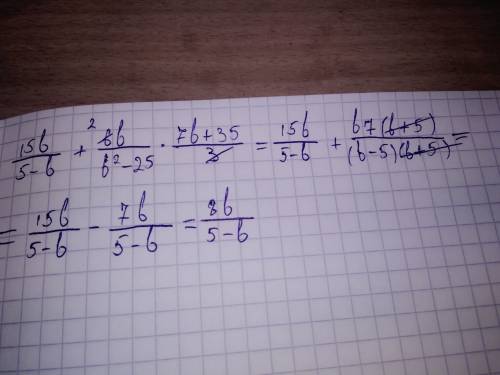 15b/(5-b) + ²8b/(b²-25) · (7b+35)/3 = 15b/(5-b) + b7(b+5)/((b-5)(b+5)) =
= 15b/(5-b) - 7b/(5-b) = 8b/(5-b)